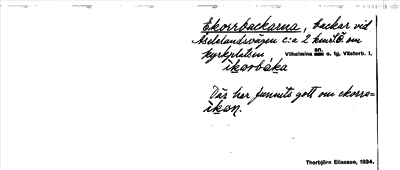 Ekorrbackarna, backar vid
Aselelandsvägen c:a 2 km
kyrkplatsen Vilhelmina sn. o. tg. Västerb. l.
ikorbáka
Där har funnits gott om ekorra=
ikon.
Thorbjörn Eliasson, 1934.